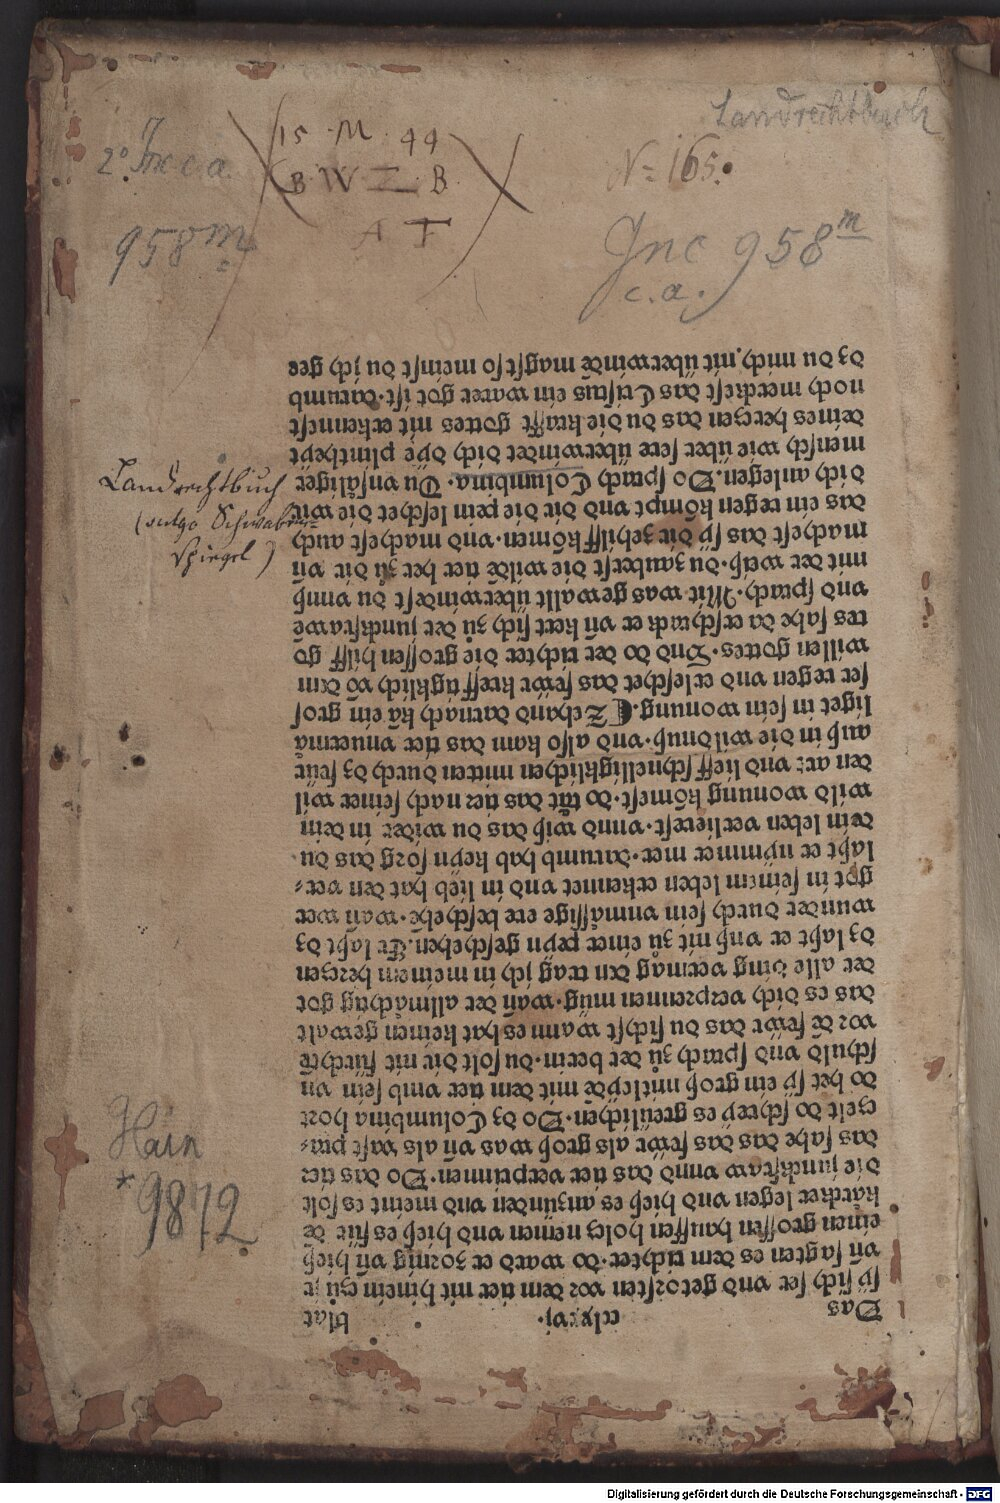 Landrechtbuch
15 · M · 44
B · W Z · B
A T
2° Inc. c. a.
958 m
N= 165.
Inc 958 m
c. a.
Landrechtbuch
(vulgo Schwaben=
Spiegel)
Hain
*9872
Das cclxxvj. blat
sÿ sich ser vnd getorsten vor dem tier nit hinein zů ir
vñ sagten es dem richter. do ward er zornig vñ hieß
einen grossen hauffen holcz nemen vnd hieß es für dē
kärcker legen vnd hieß es anzünden vnd meint es solt
die junckfraw vnnd das tier verprinnen. Do das tier
das sahe das das fewr als groß was vñ als vast prin⸗
gelt do schrey es greülichen. Do dz Columbina hort
do het sÿ ein groß mitleÿdē mit dem tier vmb sein vn
schuld vnd sprach zů der berin. du solt dir nit fürchtē
vor dē fewr das du sichst wann es hat keinen gewalt
das es dich verprennen müg. wañ der allmächtig got
der alle ding vermag den trag ich in meinem herczen
dz laßt er vnß nit zů einer peÿn geschehen. Er laßt dz
wunder durch sein anmässige ere beschehē. wañ wer
got in seinem leben erkennet vnd in lieb hat den ver⸗
laßt er nÿmmer mer. darumb hab keyn sorg das du
dein leben verlierest. vnnd wiß das du wider in dein
wild wonung kömest. do tät das tier nach seiner wil
den art vnd lieff schnelligklichen mitten durch dz feür
auß in die wildnuß. vnd also kam das tier
liget in sein wonung. ¶ Zehand darnach kā ein gros
ser regen vnd erleschet das fewr krefftigklich vō dem
willen gottes. Vnd do der richter die grossen hilff go
tes sahe da erschrack er vñ kert sich zů der junckfrawē
vnd sprach. Mit was gewallt überwindest du vnnß
mit der weiß. du zauberst die wilde tier her zů dir vñ
machest das sÿ dir zehilff kömen. vnd machest auch
das ein regen kömpt vnd dir die pein leschet die wir
dich anlegen. Do sprach Columbina. Du vnsäliger
mensch wie über sere überwindet dich dÿe plintheÿt
deines herczen das du die krafft gottes nit erkennest
noch merckest das Cristus ein warer got ist. darumb
dz du mich nit überwinde magst so meinst du ich gee
Digitalisierung gefördert durch die Deutsche Forschungsgemeinschaft - DFG